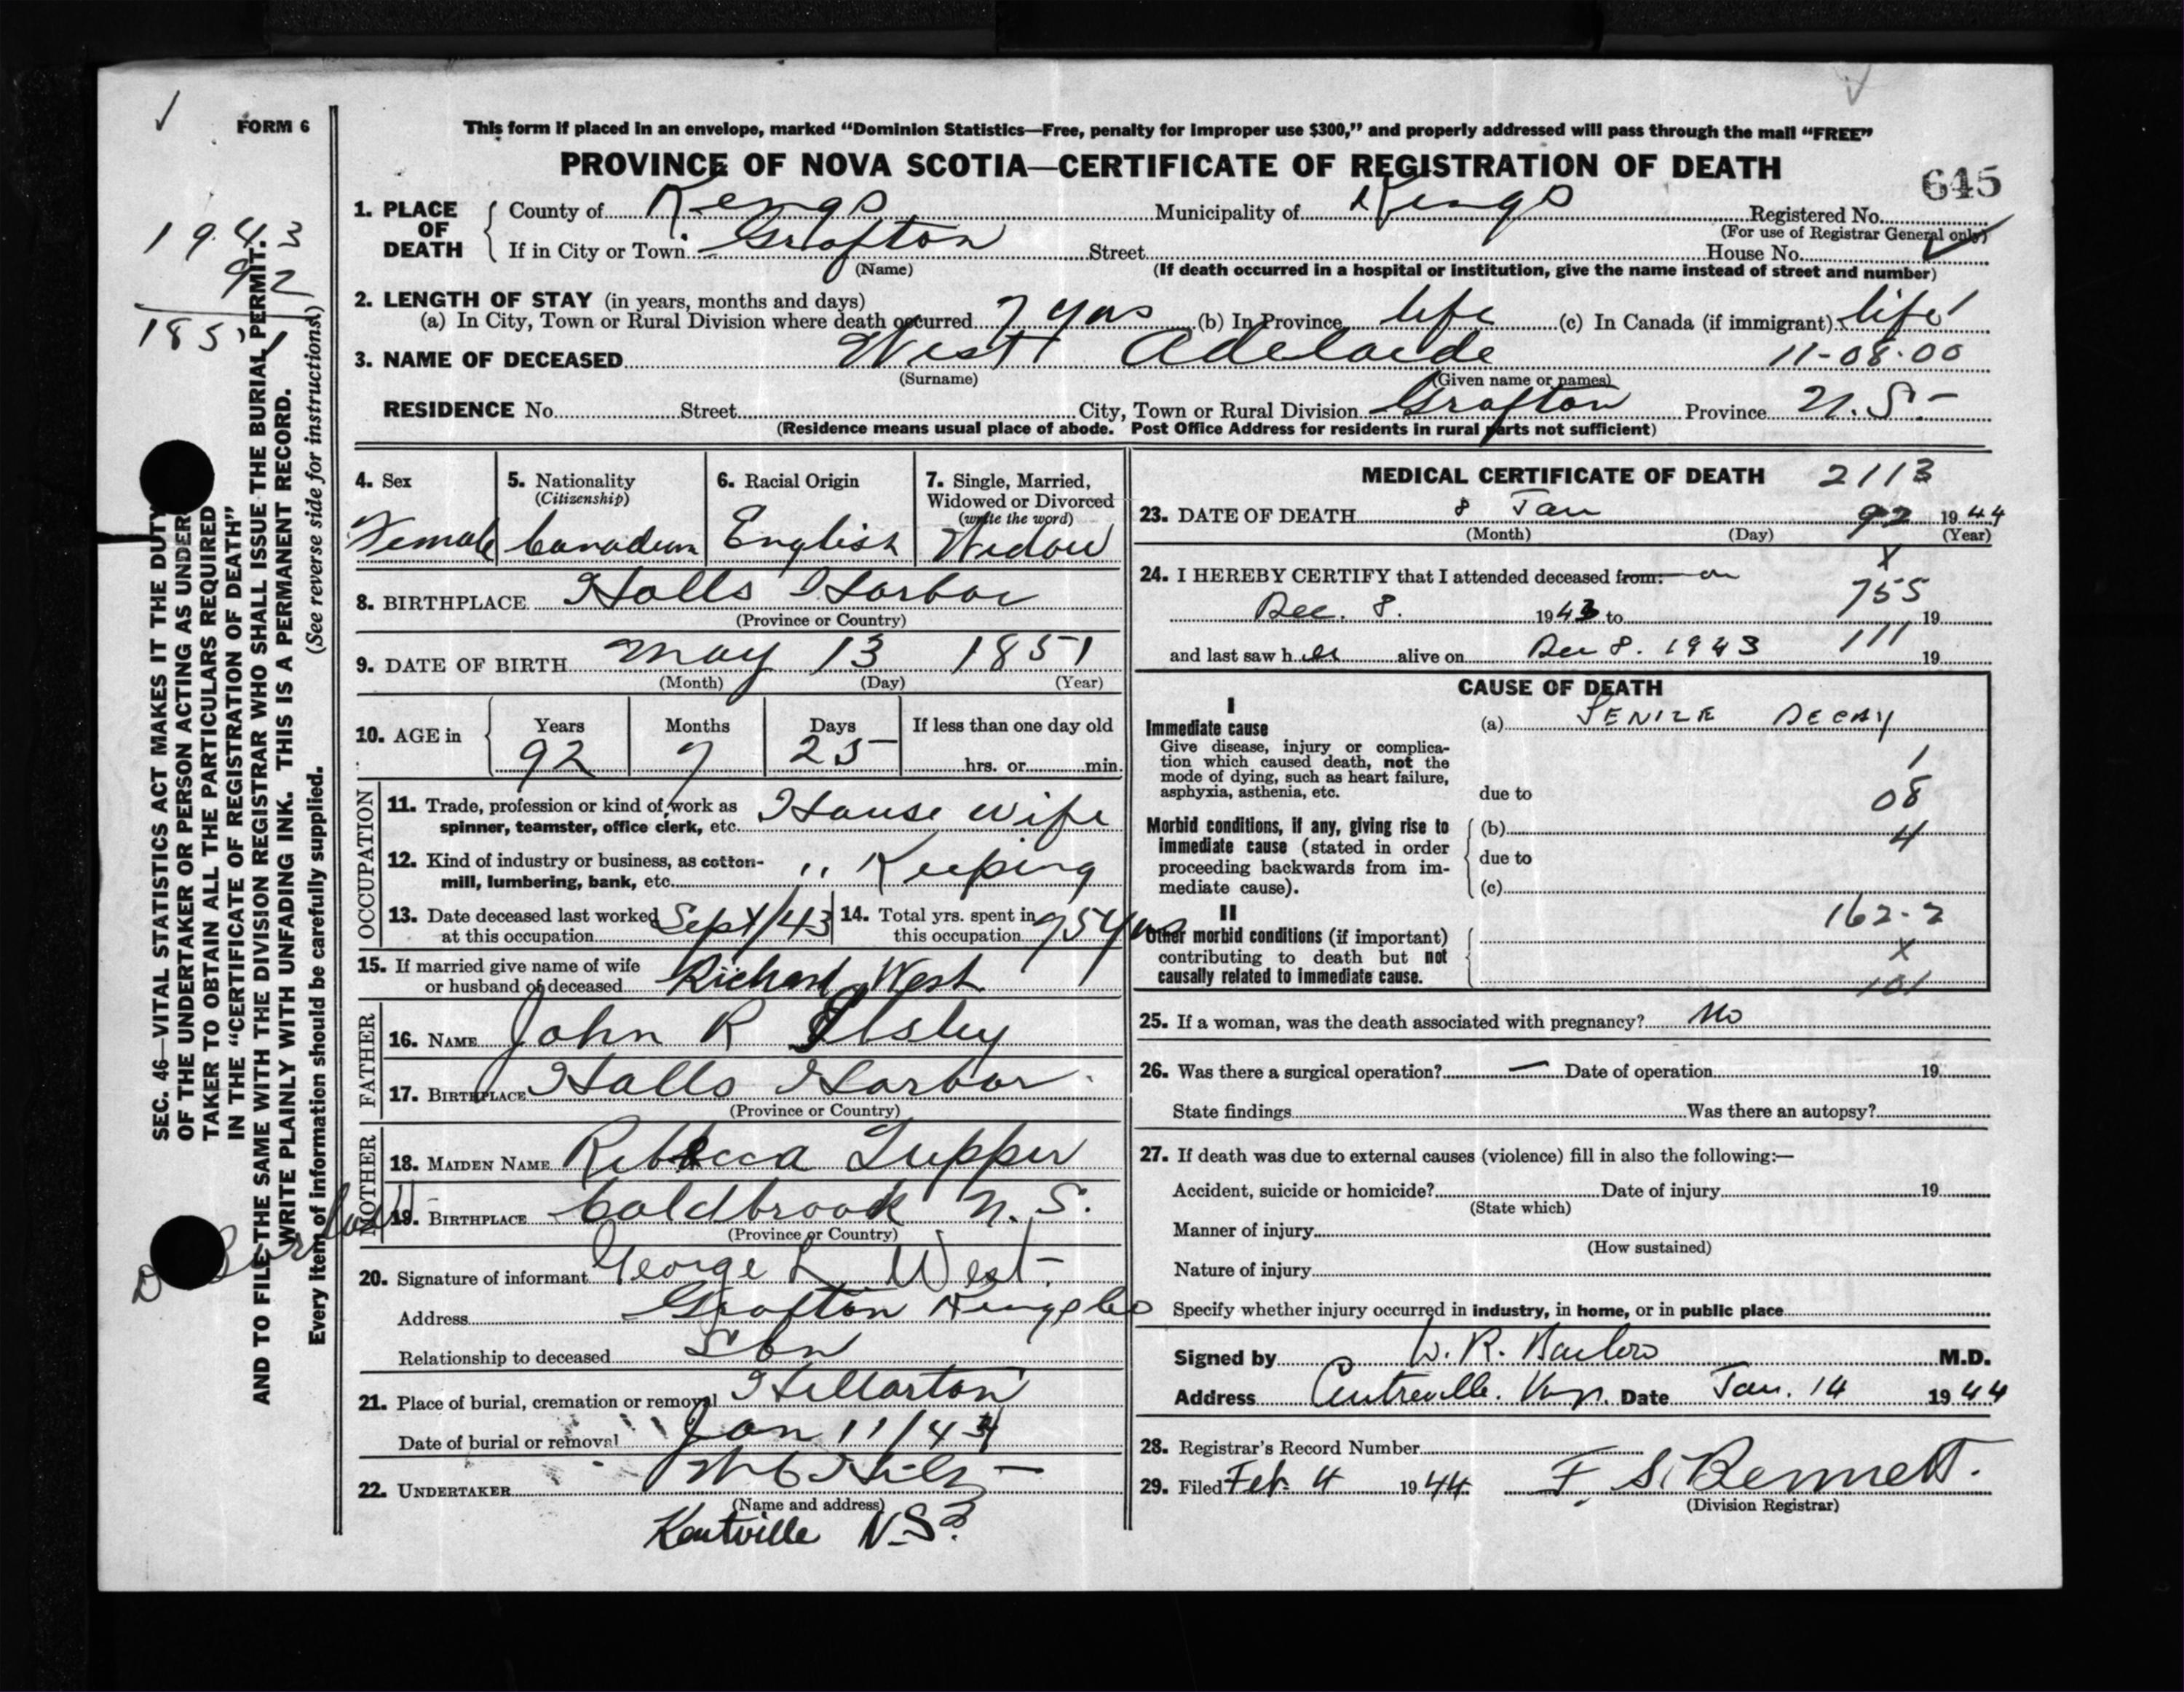 FORM 6
This form if placed in an envelope, marked "Dominion Statistics—Free, penalty for improper use $300," and properly addressed will pass through the mail "FREE"
PROVINCE OF NOVA SCOTIA—CERTIFICATE OF REGISTRATION OF DEATH
645
1. PLACE OF DEATH
County of Kings Municipality of Kings Registered No.
(For use of Registrar General only)
If in City or Town Grafton Street House No.
(Name) (If death occurred in a hospital or institution, give the name instead of street and number)
2. LENGTH OF STAY (in years, months and days)
(a) In City, Town or Rural Division where death occurred 7 yrs (b) In Province life (c) In Canada (if immigrant) life
3. NAME OF DECEASED West Adelaide 11-08-00
(Surname) (Given name or names)
RESIDENCE No. Street City, Town or Rural Division Grafton Province N.S.
(Residence means usual place of abode. Post Office Address for residents in rural parts not sufficient)
1943
92
1851
SEC. 46—VITAL STATISTICS ACT MAKES IT THE DUTY
OF THE UNDERTAKER OR PERSON ACTING AS UNDER
TAKER TO OBTAIN ALL THE PARTICULARS REQUIRED
IN THE "CERTIFICATE OF REGISTRATION OF DEATH"
AND TO FILE THE SAME WITH THE DIVISION REGISTRAR WHO SHALL ISSUE THE BURIAL PERMIT.
WRITE PLAINLY WITH UNFADING INK. THIS IS A PERMANENT RECORD.
Every item of information should be carefully supplied. (See reverse side for instructions)
4. Sex
Female
5. Nationality
(Citizenship)
Canadian
6. Racial Origin
English
7. Single, Married,
Widowed or Divorced
(write the word)
Widow
8. BIRTHPLACE Halls Harbor
(Province or Country)
9. DATE OF BIRTH May 13 1851
(Month) (Day) (Year)
10. AGE in Years Months Days If less than one day old
92 7 25 hrs. or min.
OCCUPATION
11. Trade, profession or kind of work as
spinner, teamster, office clerk, etc. House wife
12. Kind of industry or business, as cotton-
mill, lumbering, bank, etc. " Keeping
13. Date deceased last worked
at this occupation Sept/43
14. Total yrs. spent in
this occupation 75 yrs
15. If married give name of wife
or husband of deceased Richard West
FATHER
16. NAME John R Ilsley
17. BIRTHPLACE Halls Harbor
(Province or Country)
MOTHER
18. MAIDEN NAME Rebecca Tupper
19. BIRTHPLACE Coldbrook N.S.
(Province or Country)
20. Signature of informant George L West
Address Grafton Kings Co
Relationship to deceased Son
21. Place of burial, cremation or removal
Date of burial or removal Jan 11/44
22. UNDERTAKER
(Name and address)
Kentville N.S.
MEDICAL CERTIFICATE OF DEATH 2113
23. DATE OF DEATH 8 Jan 92 1944
(Month) (Day) (Year)
x
24. I HEREBY CERTIFY that I attended deceased from: on
Dec. 8. 1943 to 755 19
and last saw her alive on Dec 8. 1943 111 19
CAUSE OF DEATH
I
Immediate cause
Give disease, injury or complica-
tion which caused death, not the
mode of dying, such as heart failure,
asphyxia, asthenia, etc.
(a) SENILE DECAY
1
due to 08
Morbid conditions, if any, giving rise to
immediate cause (stated in order
proceeding backwards from im-
mediate cause).
(b) 4
due to
(c)
II
162-2
Other morbid conditions (if important)
contributing to death but not
causally related to immediate cause.
x
101
25. If a woman, was the death associated with pregnancy? No
26. Was there a surgical operation? — Date of operation 19
State findings Was there an autopsy?
27. If death was due to external causes (violence) fill in also the following:—
Accident, suicide or homicide? Date of injury 19
(State which)
Manner of injury
(How sustained)
Nature of injury
Specify whether injury occurred in industry, in home, or in public place
Signed by W. R. Barlow M.D.
Address Centreville. Date Jan. 14 1944
28. Registrar's Record Number
29. Filed Feb 4 1944 F. S. Bennett.
(Division Registrar)